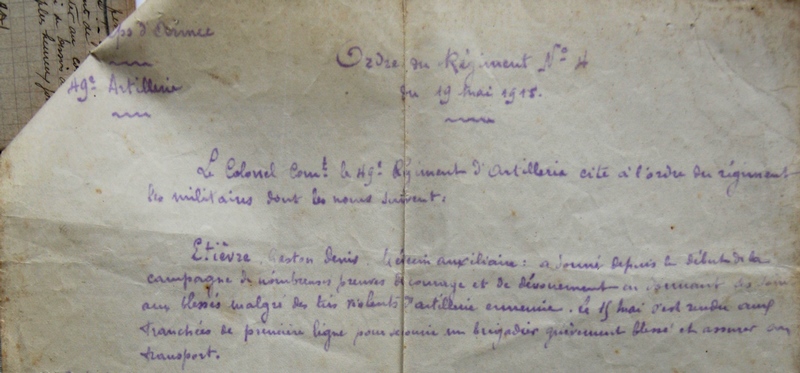 ps d'Armée
49e Artillerie
Ordre du Régiment No 4
du 19 mai 1915.
Le Colonel Comt. le 49e Régiment d'Artillerie cite à l'ordre du régiment
les militaires dont les noms suivent:
Etièvre Gaston Denis Médecin auxiliaire: a donné depuis le début de la
campagne de nombreuses preuves de courage et de dévouement en donnant des soins
aux blessés malgré des tirs violents d'artillerie ennemie. Le 15 mai s'est rendu aux
tranchées de première ligne pour secourir un brigadier grièvement blessé et assurer son
transport.